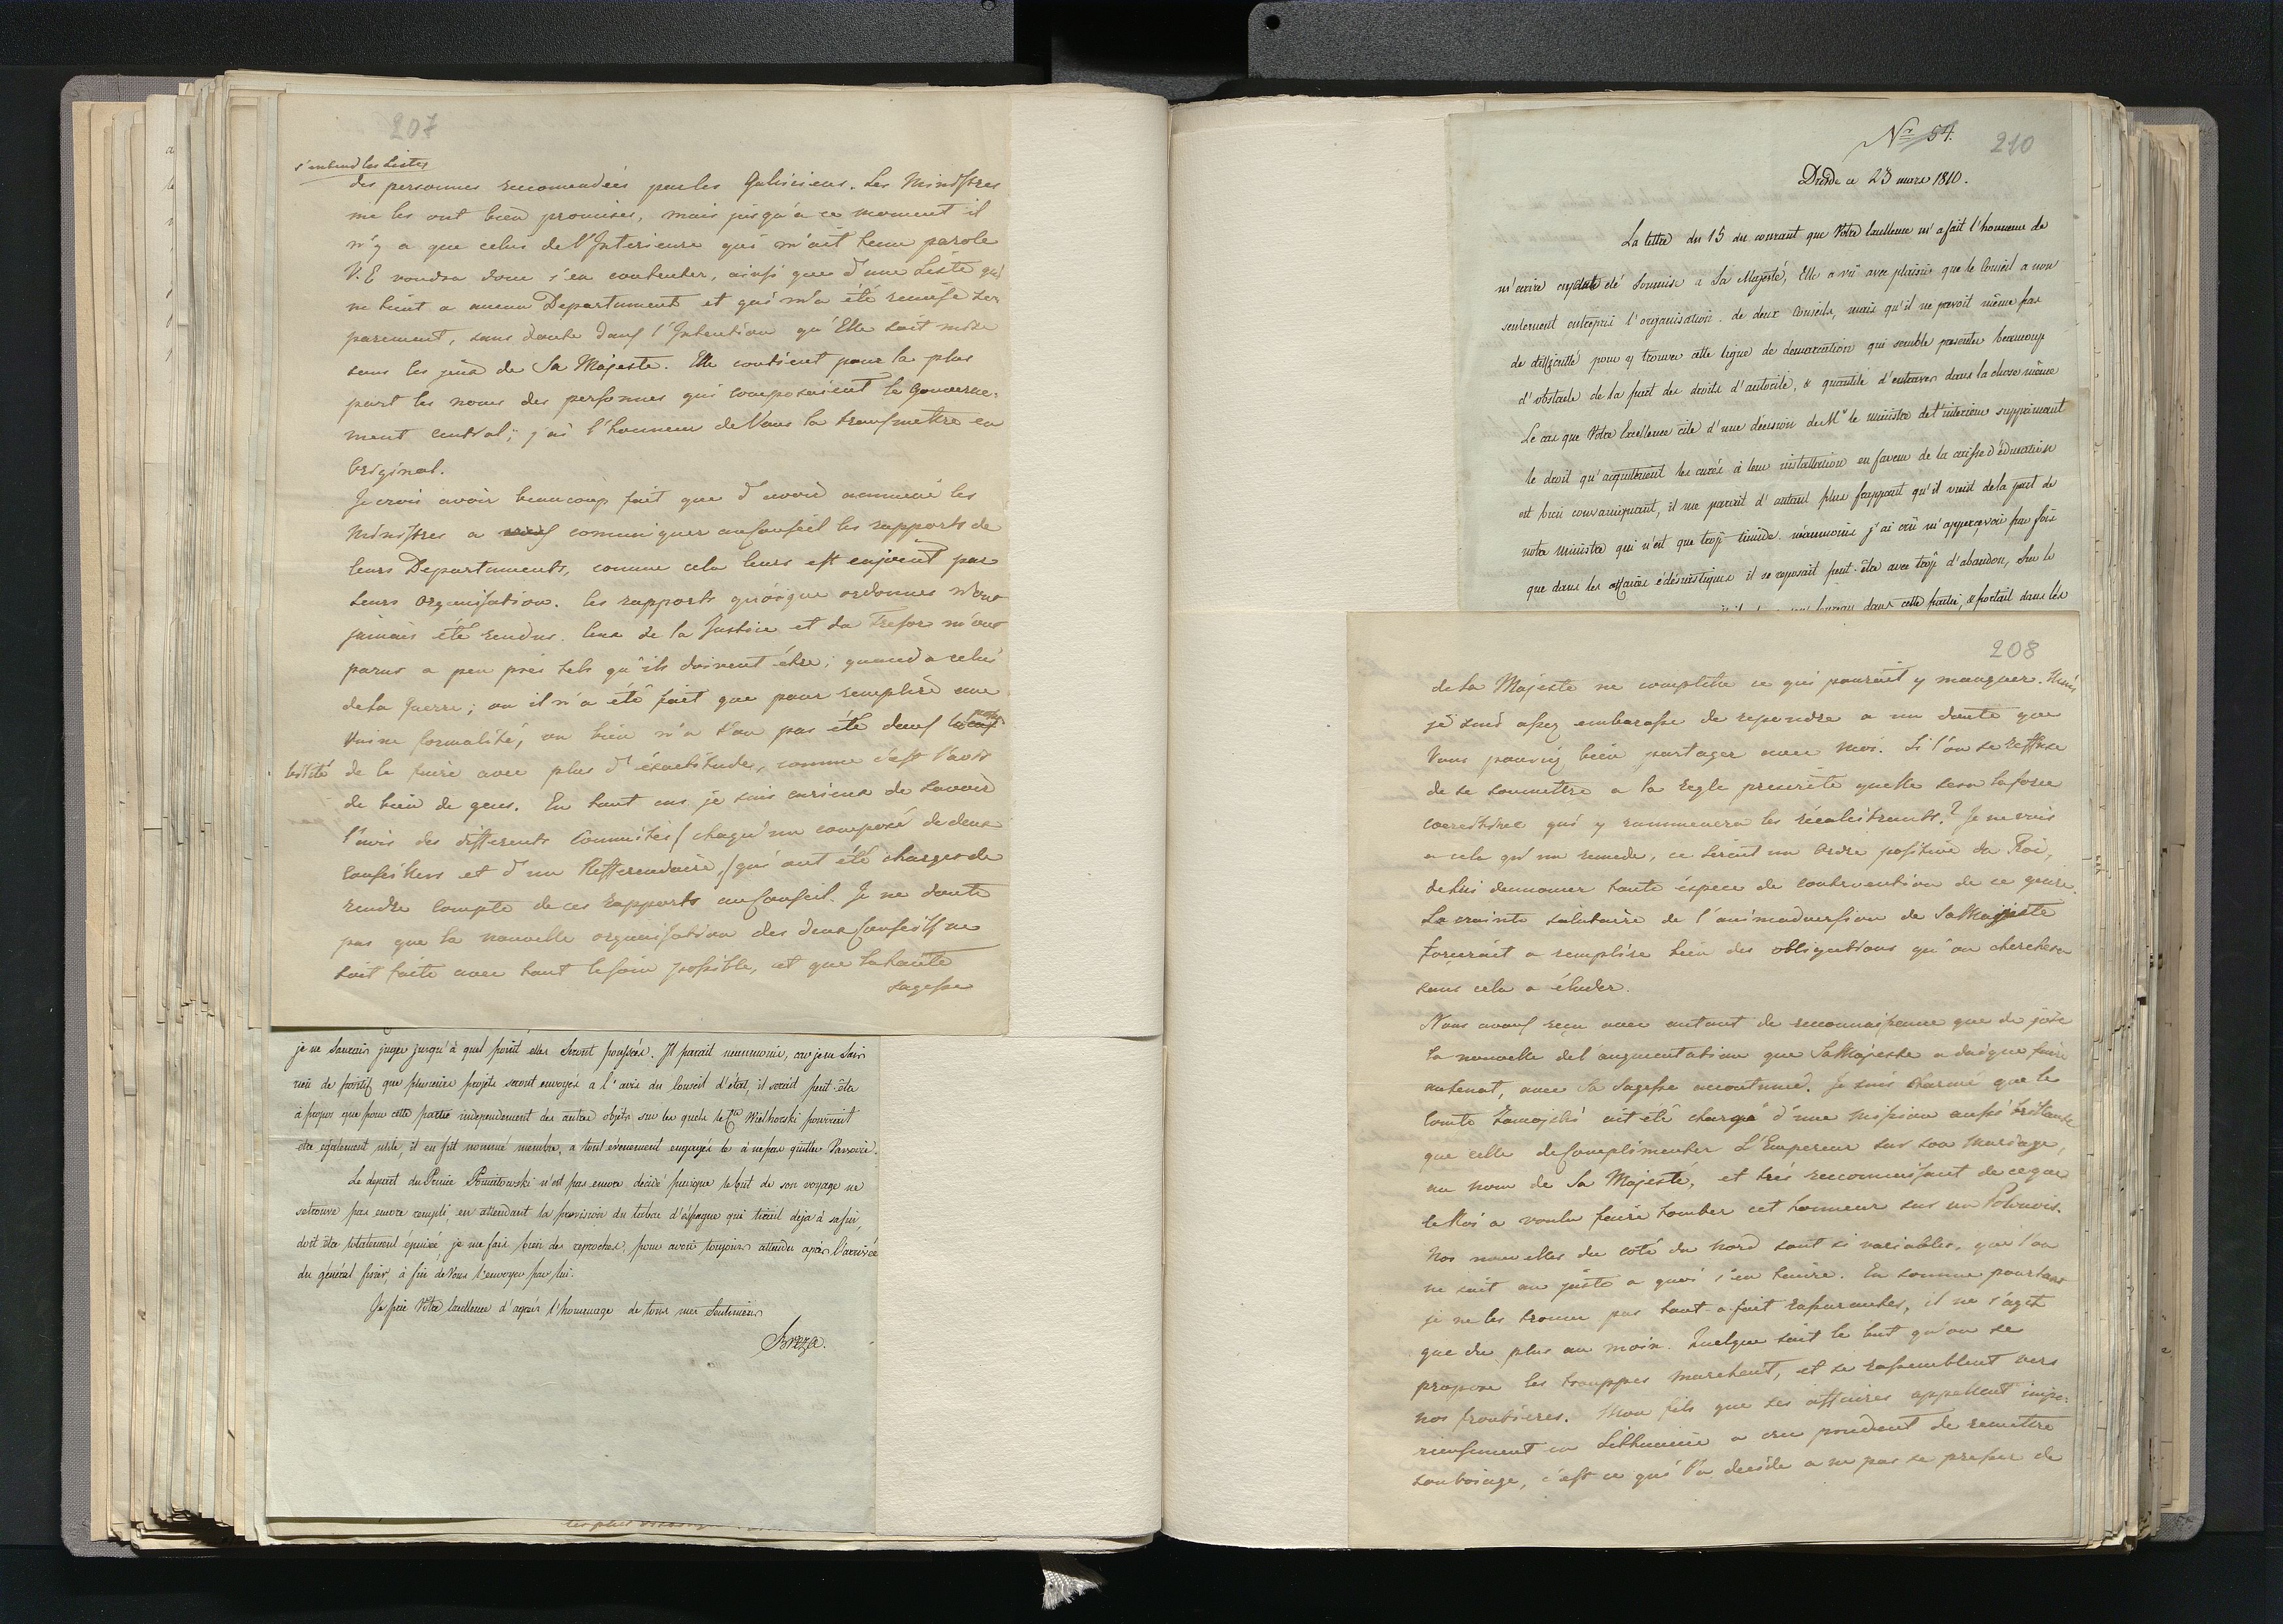 207
s'entend les Listes
des personnes recomendées par les Galiciens. Les Ministres
me les ont bien promises, mais jusqu'a ce moment il
n'y a que celui de l'Interieure qui m'ait tenu parole
V.E voudra donc s'en contenter, ainsi que d'une Liste qui
ne tient a aucun Departement et qui m'a été remise se=
parement, sans doute dans l'Intention qu'Elle soit mise
sous les yeux de Sa Majesté. Elle contient pour la plus
part les noms des personnes qui composaient le Gouverne=
ment central; j'ai l'honneur de Vous la transmettre en
Original.
Je crois avoir beaucoup fait que d'avoir ammené les
Ministres a communiquer au Conseil les rapports de
leurs Departements, comme cela leurs est enjoint par
leurs organisation. Ces rapports quoique ordonnés n'ont
jamais été rendus. Ceux de la Justice et du Tresor m'ont
parus a peu prés tels qu'ils doivent être; quand a celui
de la Guerre; ou il n'a été fait que pour remplire une
vaine formalité, ou bien n'a t'on pas été dans la possi
bilité de le faire avec plus d'éxactitude, comme c'est l'avis
de bien de gens. En tout cas je suis curieux de savoir
l'avis des differents Committés (chaqu'un composé de deux
Conseillers et d'un Refferendaire,) qui ont été chargés de
rendre Compte de ces rapports au Conseil. Je ne doute
pas que la nouvelle organisation des deux Conseils ne
soit faite avec tout le soin possible, et que la haute
sagesse
je ne saurais juger jusqu'à quel point elles seront poussées. Il parait neanmoins, car je ne sais
rien de positif que plusieurs projets seront envoyés a l'avis du Conseil d'état, il serait peut-être
à propos que pour cette partie independement des autres objets sur les quels le Cte Wielhorski pourrait
être egalement utile, il en fut nommé membre, a tout évenement engagés le à ne pas quitter Varsovie.
Le depart du Prince Poniatowski n'est pas encore decidé puisque le but de son voyage ne
se trouve pas encore rempli, en attendant la provision du tabac d'éspagne qui tirait deja à sa fin,
doit être totalement épuisée, je me fais bien des reproches, pour avoir toujours attendu après l'arrivée
du général à fin de Vous l'envoyer par lui.
Je prie Votre Excellence d'agréer l'hommage de tous mes sentimens
Breza.
Nr 54.
210
Dresde ce 23 mars 1810.
La lettre du 15 du courant que Votre Excellence m'a fait l'honneur de
m'ecrire été soumise a Sa Majesté, Elle a vû avec plaisir que le Conseil a non
seulement entrepris l'organisation de deux Conseils, mais qu'il ne prevoit même pas
de difficulté pour y trouver cette ligne de demarcation qui semble presenter beaucoup
d'obstacle de la part des droits d'autorité, & quantité d'entraves dans la chose même
Le cas que Votre Excellence cite d'une décision de Mr le ministre de l'interieur supprimant
le droit qu'acquittaient les curés à leur installation en faveur de la caisse d'éducation
est bien convainquant, il me parait d'autant plus frappant qu'il vient de la part de
notre ministre qui n'est que trop timide. néanmoins j'ai crû m'appercevoir par fois
que dans les affaires eclésiastiques il se reposait peut-être avec trop d'abandon, sur le
bureau dans cette partie, & portait dans les
208
de Sa Majesté ne complette ce qui pourait y manquer. Mais
je suis assez embarassé de repondre a un doute que
Vous pourriez bien partager avec moi. Si l'on se reffuse
de se soumettre a la regle prescrite quelle sera la force
coercitive qui y rammenera les récalcitrants? Je ne vois
a cela qu'un remede, ce serait un Ordre positive du Roi,
de lui dennoncer toute éspece de contravention de ce genre.
La crainte salutaire de l'animadversion de Sa Majesté
forcerait a remplire bien des obligations qu'on cherchera
sans cela a éluder.
Nous avons reçu avec autant de reconnaissance que de joie
la nouvelle de l'augmentation que Sa Majesté a daigné faire
au Senat, avec Sa Sagesse accoutumée. Je suis charmé que le
Comte Zamojski ait été chargé d'une mission aussi brillante
que celle de Complimenter L'Empereur sur son Mariage,
au nom de Sa Majesté, et très reconnaissant de ce que
le Roi a voulu faire tomber cet honneur sur un Polonois.
Nos nouvelles du coté du Nord sont si variables, que l'on
ne sait au juste a quoi s'en tenire. En somme pourtant
je ne les trouve pas tout-a-fait rassurantes, il ne s'agit
que du plus au moin. Quelque soit le but qu'on se
propose les trouppes marchent, et se rassemblent vers
nos frontieres. Mon fils que ses affaires appellent impe=
rieusement en Lithuanie a cru prudent de remettre
son voiage, c'est ce qui l'a decidé a ne pas se presser de